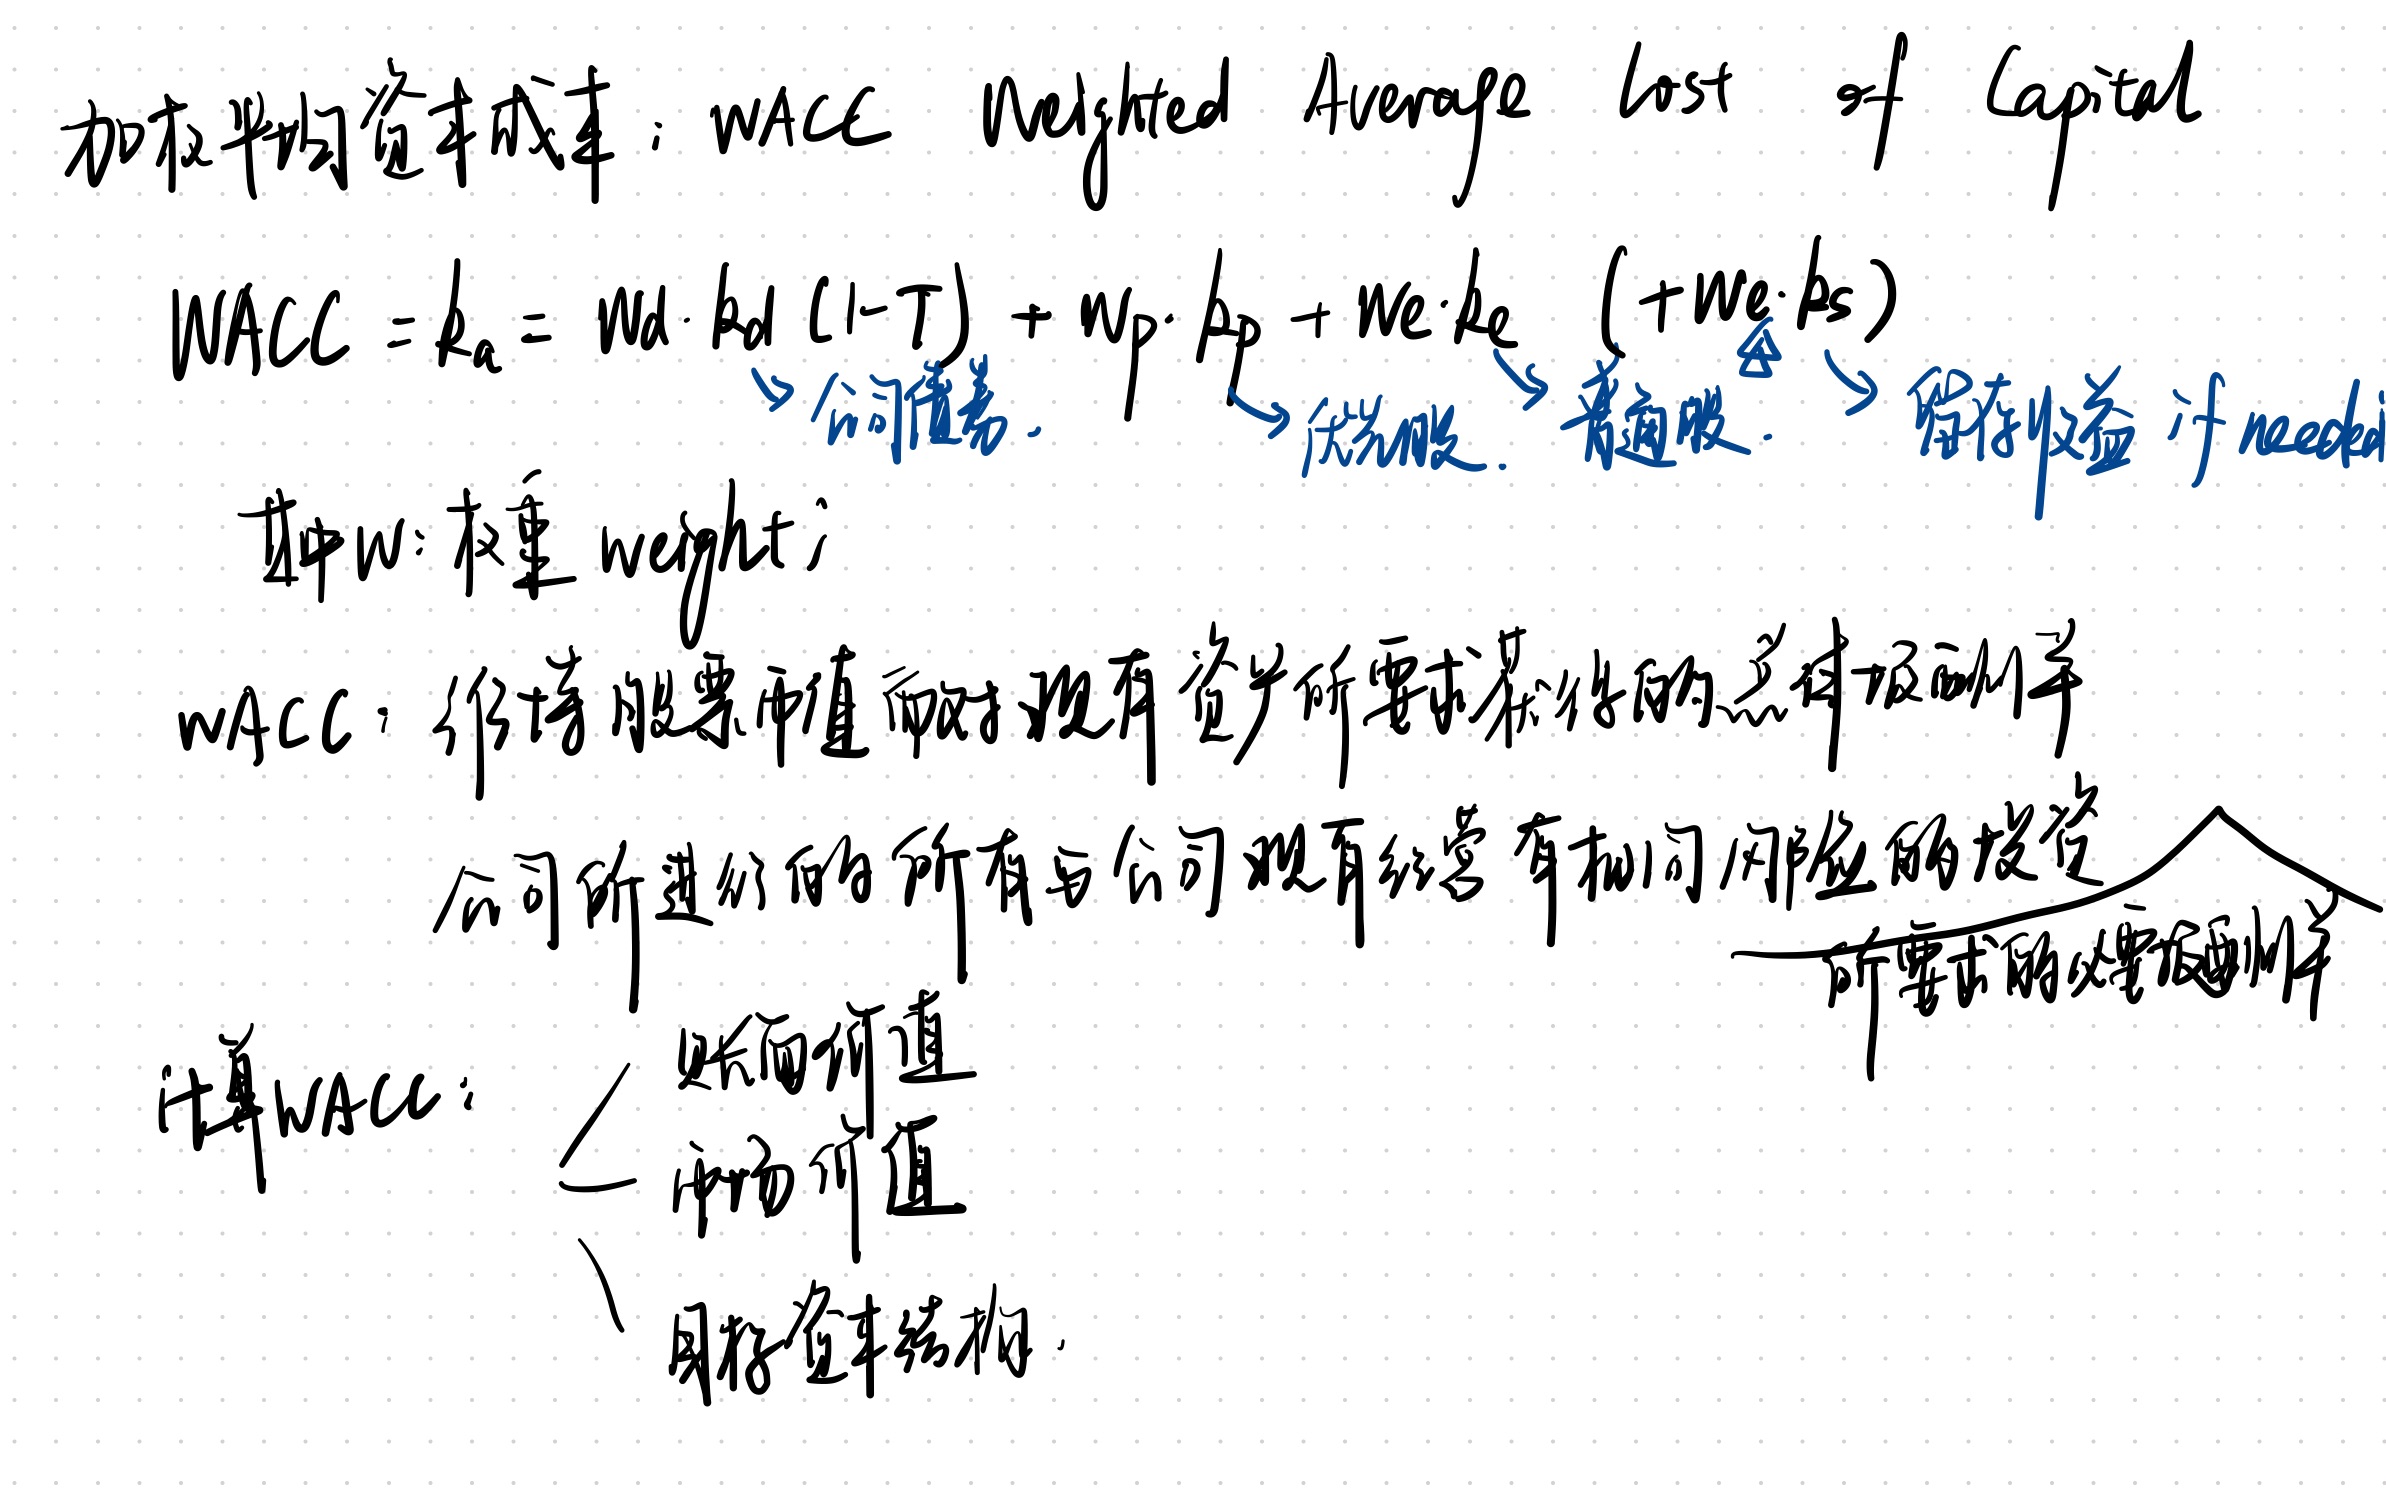 加权平均资本成本率：WACC Weighted Average Cost of Capital
WACC = ka = Wd·kd (1-T) + Wp·kp + We·ke (+We·ks)
公司债券. 优先股. 普通股. 留存收益 if needed
其中W：权重 weight；
WACC：保持股票市值而对现有资产所要求获得的总体报酬率
公司所进行的所有与公司现有经营有相同风险的投资
所要求的必要报酬率
计算WACC：
账面价值
市场价值
目标资本结构.